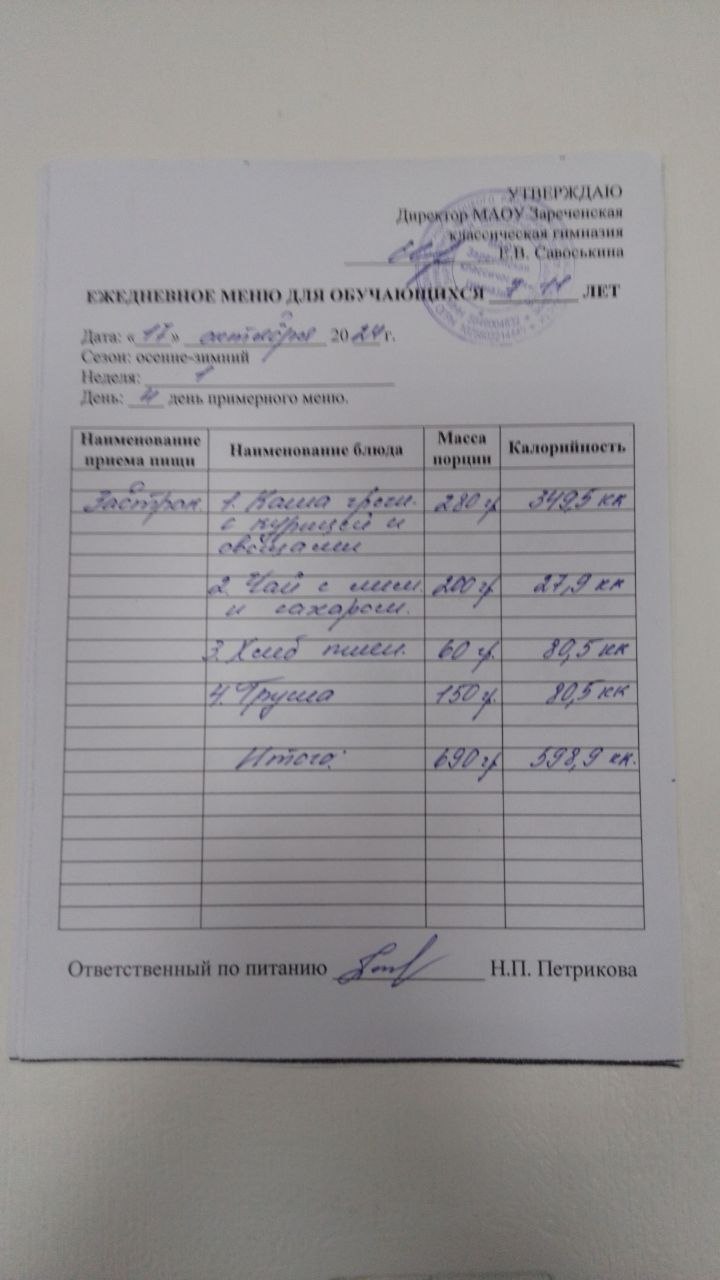 УТВЕРЖДАЮ
Директор МАОУ Зареченская
классическая гимназия
Е.В. Савоськина
ЕЖЕДНЕВНОЕ МЕНЮ ДЛЯ ОБУЧАЮЩИХСЯ 7 11 ЛЕТ
Дата: «17» октября 2024 г.
Сезон: осенне-зимний
Неделя: 1
День: 4 день примерного меню.
Наименование приема пищи Наименование блюда Масса порции Калорийность
Завтрак 1. Каша гречн. 280 гр 349,5 кк
с курицей и
овощами
2. Чай с лим. 200 гр 27,9 кк
и сахаром.
3. Хлеб пшен. 60 гр. 80,5 кк
4. Груша 150 гр. 80,5 кк
Итого: 690 гр 598,9 кк.
Ответственный по питанию Н.П. Петрикова